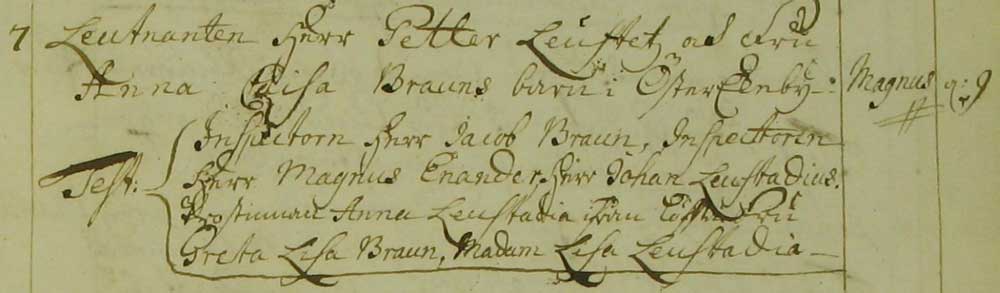 7 Leutnanten Herr Petter Leustet, och Fru
Anna Caisa Brauns barn i ÖsterEenby-: Magnus
Inspectorn Herr Jacob Braun, Inspectoren
Test: Herr Magnus Enander, Herr Johan Leustadius.
Prostinnan Anna Leustadia ifrån Fru
Greta Lisa Braun, Madam Lisa Leustadia-